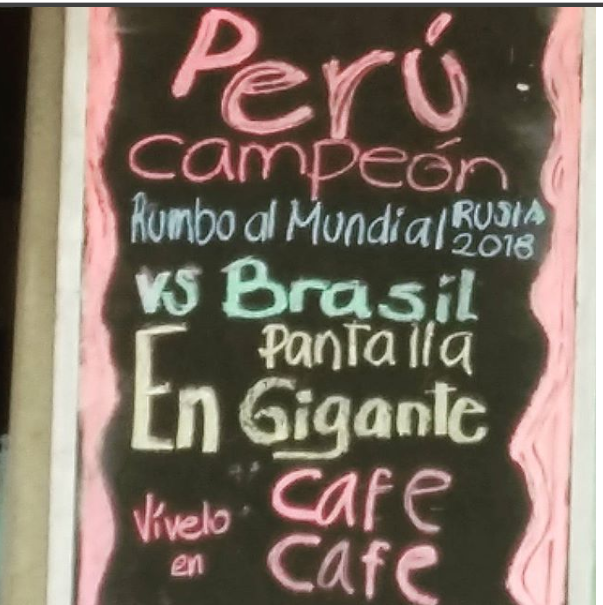 Perú
campeón
Rumbo al Mundial RUSIA 2018
vs Brasil
En Pantalla Gigante
Vívelo en cafe cafe